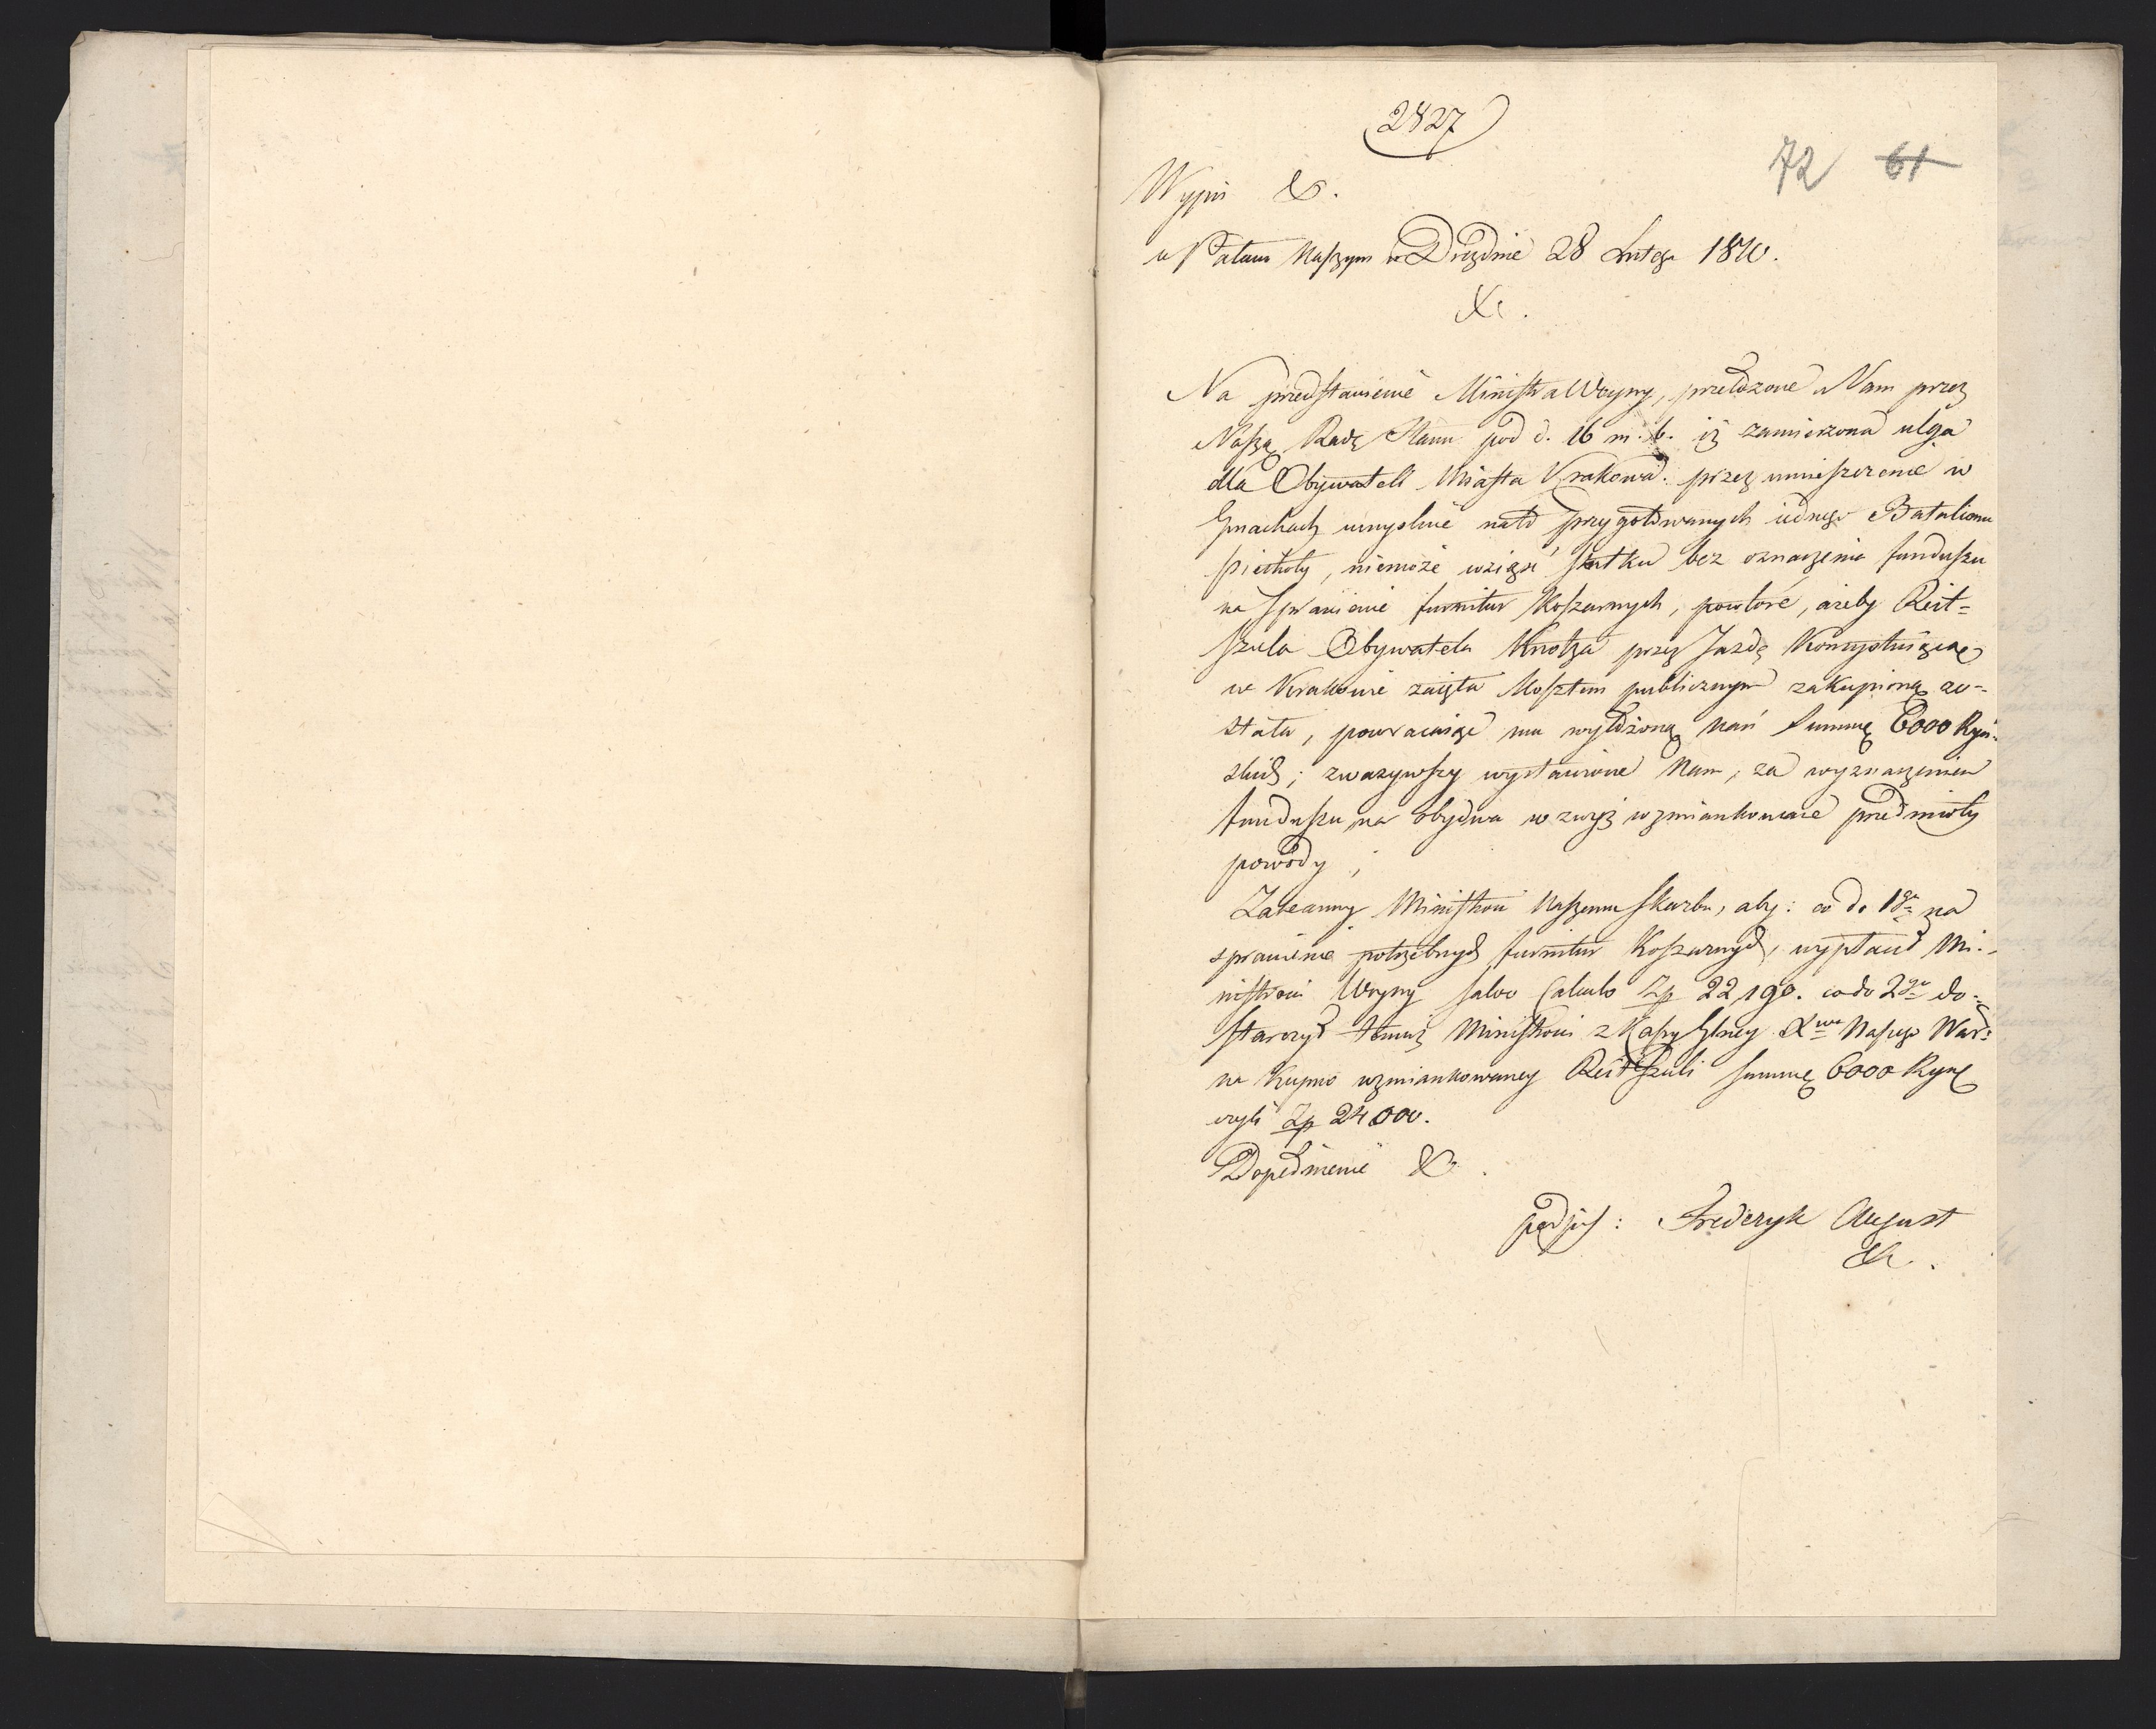 2827
72 61
Wypis &c.
w Pałacu Naszym w Dreznie 28 Lutego 1810.
&c.
Na przedstawienie Ministra Woyny, przełożone Nam przez
Naszą Radę Stanu pod d. 16 m. b. iż zamierzona ulga
dla Obywateli Miasta Krakowa przez umieszczenie w
Gmachach umyslnie nato przygotowanych iednego Batalionu
piechoty, niemoże wziąść skutku bez oznaczenia funduszu
na sprawienie furnitur Koszarnych, powtóre, ażeby Reit-
szula Obywatela Knotza przez Jazdę Konsystuiącą
w Krakowie zaięta kosztem publicznym zakupioną zo-
stała, powracaiąc mu wyłożoną nań Summę 6000 Ryń-
skich; zważywszy wystawione Nam, za wyznaczeniem
funduszu na obydwa wzwyż wzmiankowane przedmioty
powody;
Zalecamy Ministrowi Naszemu Skarbu, aby: co do 1go na
sprawienie potrzebnych furnitur Koszarnych, wypłacił Mi-
nistrowi Woyny salvo Calculo Zp 22,190. co do 2go do-
starczył temuż Ministrowi z Kassy Głney Xwa Naszego War:
na kupno wzmiankowaney Reitszuli summę 6000 Ryńs
czyli Zp 24000.
Dopełnienie &c.
podpis: Frederyk August
&c.